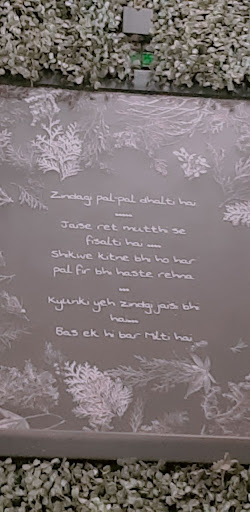 Zindagi pal-pal dhalti hai
......
Jaise ret mutthi se
fisalti hai ....
Shikwe kitne bhi ho har
pal fir bhi haste rehna
...
Kyunki yeh zindgi jaisi bhi
hai....
Bas ek hi bar Milti hai